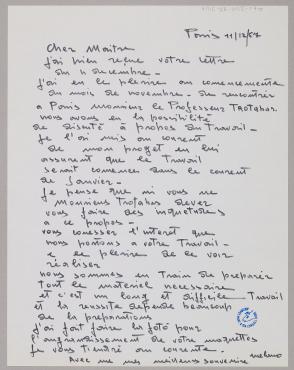 Paris 11/12/67
Cher Maitre
j'ai bien reçue votre lettre
du 4 decembre -
j'ai eu le plesire au comencemente
du mois de novembre - de rencontrer
a Paris monsieur le Professeur Trotabas
nous avons eu la possibilité
de disuté à propos du Travail -
Je l'ai mis au courent
de mon projet en lui
assurent que le Travail
serait comencé dans le courent
de Janvier -
Je pense que ni vous ne
Monsieur Trotabas devez
vous faire des inquietudes
a ce propos -
vous conesser l'interet que
nous portons a votre Travail -
e le plesire de le voir
réaliser
nous sommes en Train de preparer
tout le materiel necessaire
et c'est un long et difficile Travail
et la reussite depende beaucoup
de la preparation
j'ai fait faire la foto pour
l'agrandissement de votre maquettes
Je vous tiendré au courente -
Avec me meilleurs souvenire